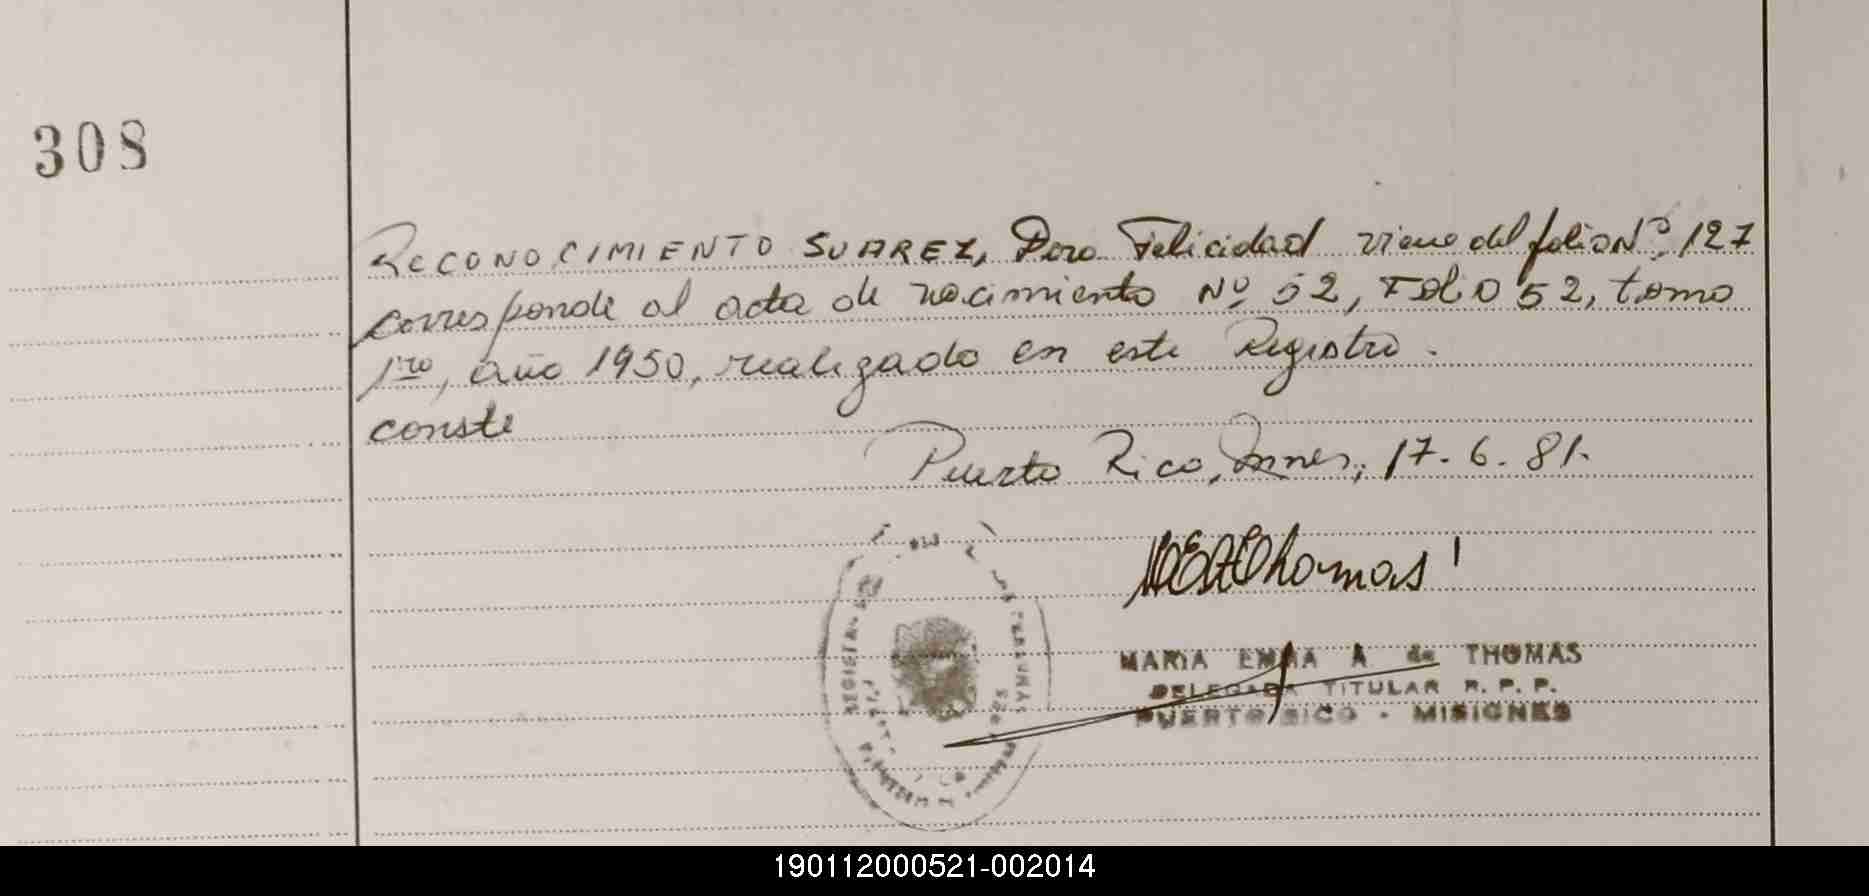 308
RECONOCIMIENTO SUAREZ, Dora Felicidad viene del folio Nº 127
corresponde al acta de nacimiento Nº 52, FOLIO 52, tomo
1ro, año 1950, realizado en este Registro.
conste
Puerto Rico, Mnes, 17.6.81.
Thomas
MARIA EMMA A. de THOMAS
DELEGADA TITULAR R. P. P.
PUERTO RICO - MISIONES
190112000521-002014